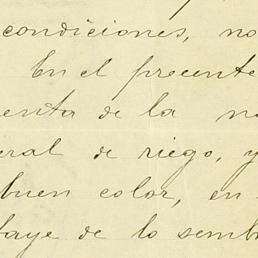 condiciones, no
En el presente
enta de la
eral de riego, y
buen color, en
taye de lo semb